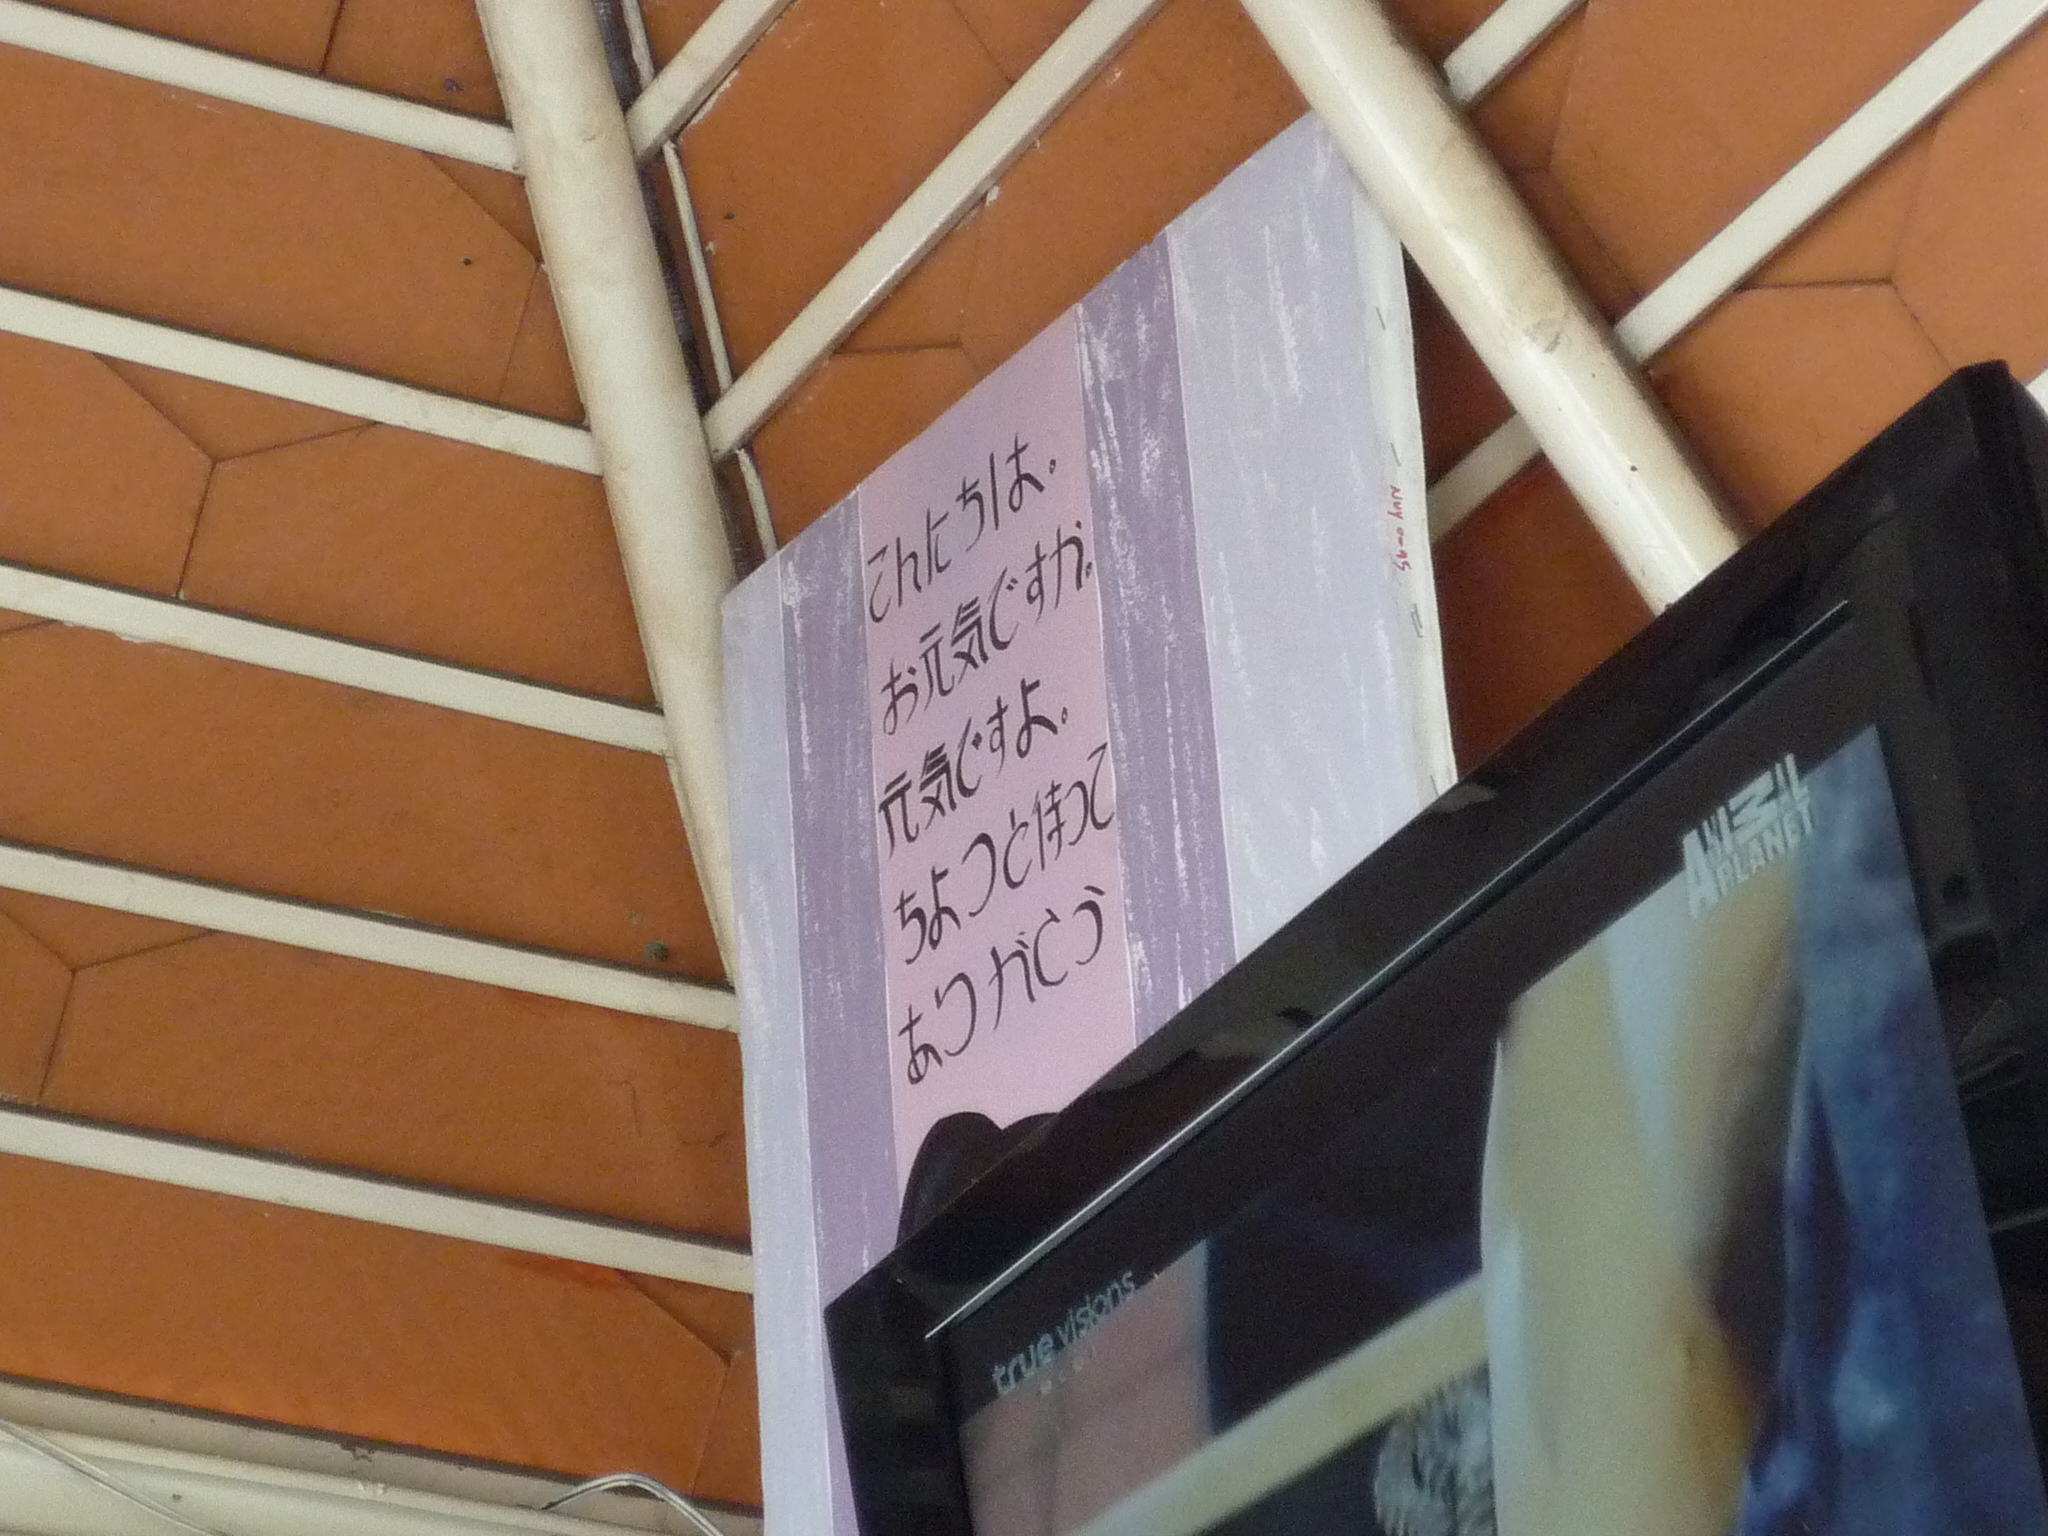 こんたちは。
お元気ですか。
元気ですよ。
ちよつと待って
ありがとう
ANIMAL
PLANET
true visions